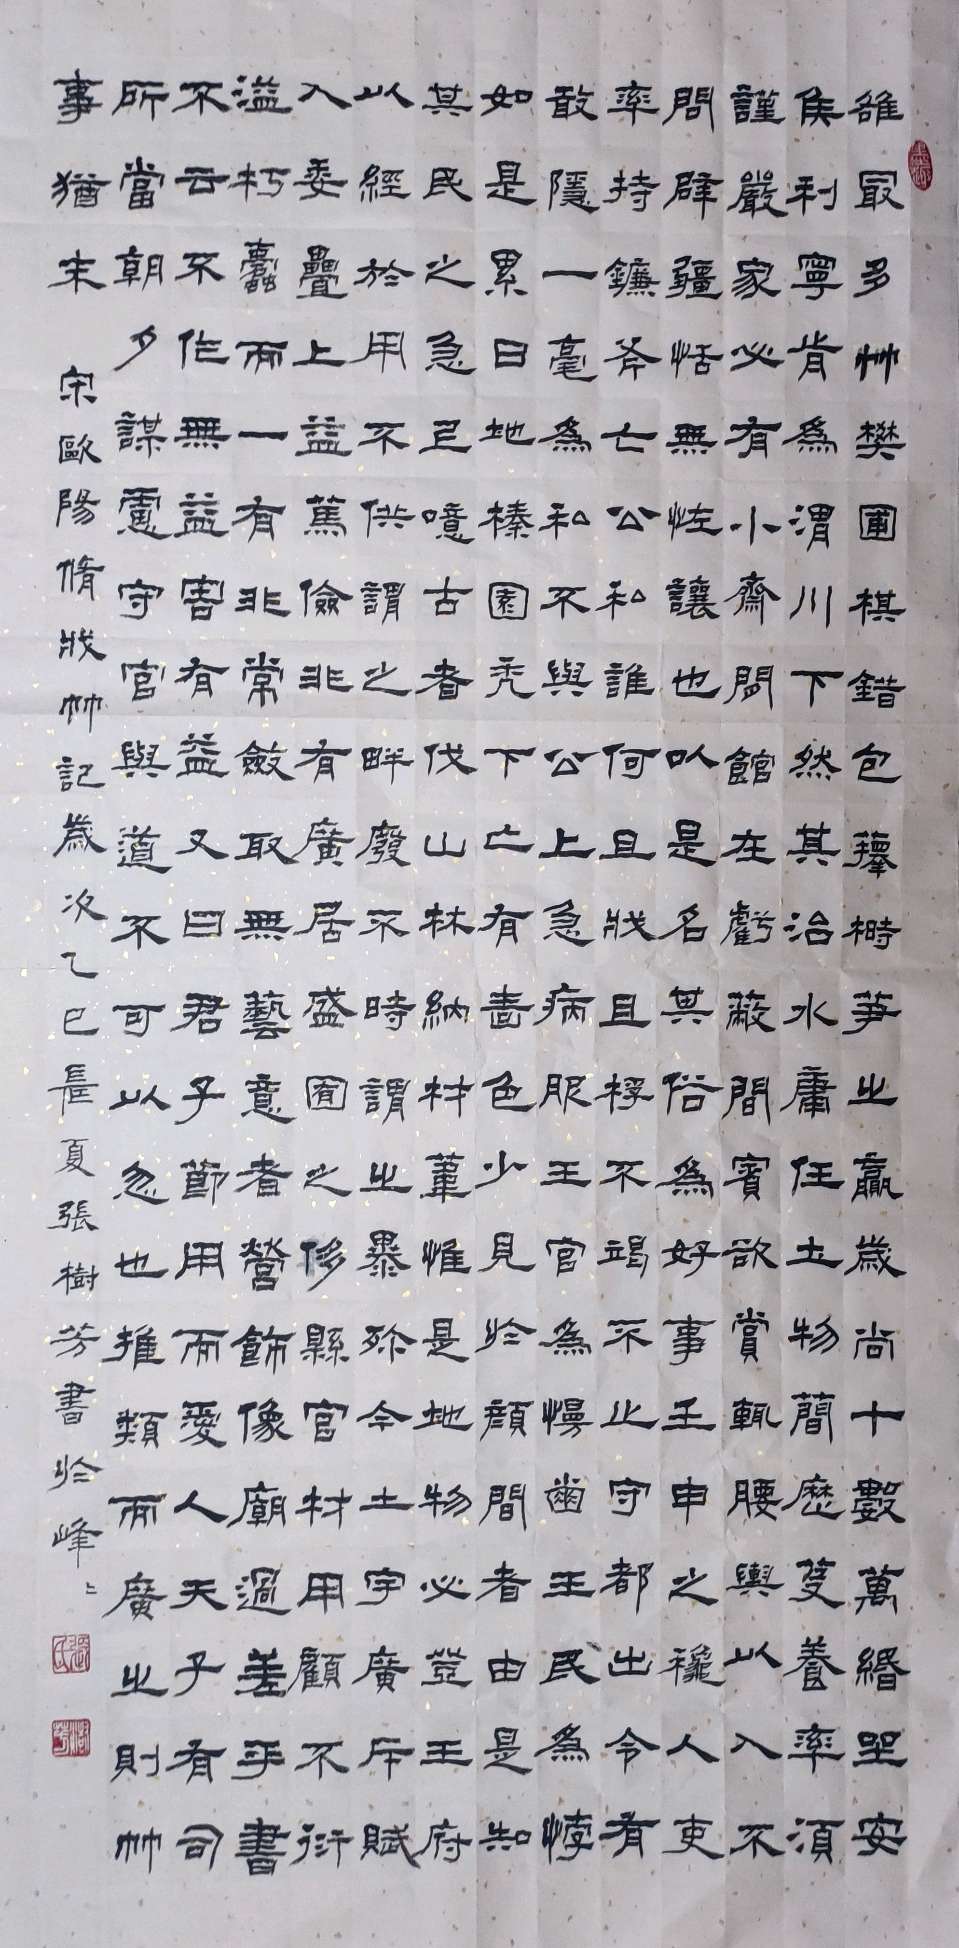 雒最多竹樊圃棋錯包籜榯筍之贏歲尚十數萬緡坐安
侯利寧肯為渭川下然其治水庸任土物簡歷芟養率須
謹嚴家必有小齋閒館在虧蔽間賓欲賞輒腰輿以入不
問辟疆恬無怪讓也以是名其俗為好事壬申之秋人吏
率持鐮斧亡公私誰何且戕且桴不竭不止守都出令有
敢隱一毫為私不與公上急病服王官為慢齒王民為悖
如是累日地榛園禿下亡有嗇色少見於顏間者由是知
其民之急上噫古者伐山林納材葦惟是地物必登王府
以經於用不供謂之畔廢不時謂之暴殄今土宇廣斥賦
入委疊上益篤儉非有廣居盛囿之侈縣官材用顧不衍
溢朽蠹而一有非常斂取無藝意者營飾像廟過差乎書
不云不作無益害有益又曰君子節用而愛人天子有司
所當朝夕謀慮守官與道不可以忽也推類而廣之則竹
事猶末
宋歐陽脩戕竹記歲次乙巳長夏張樹芳書於峰